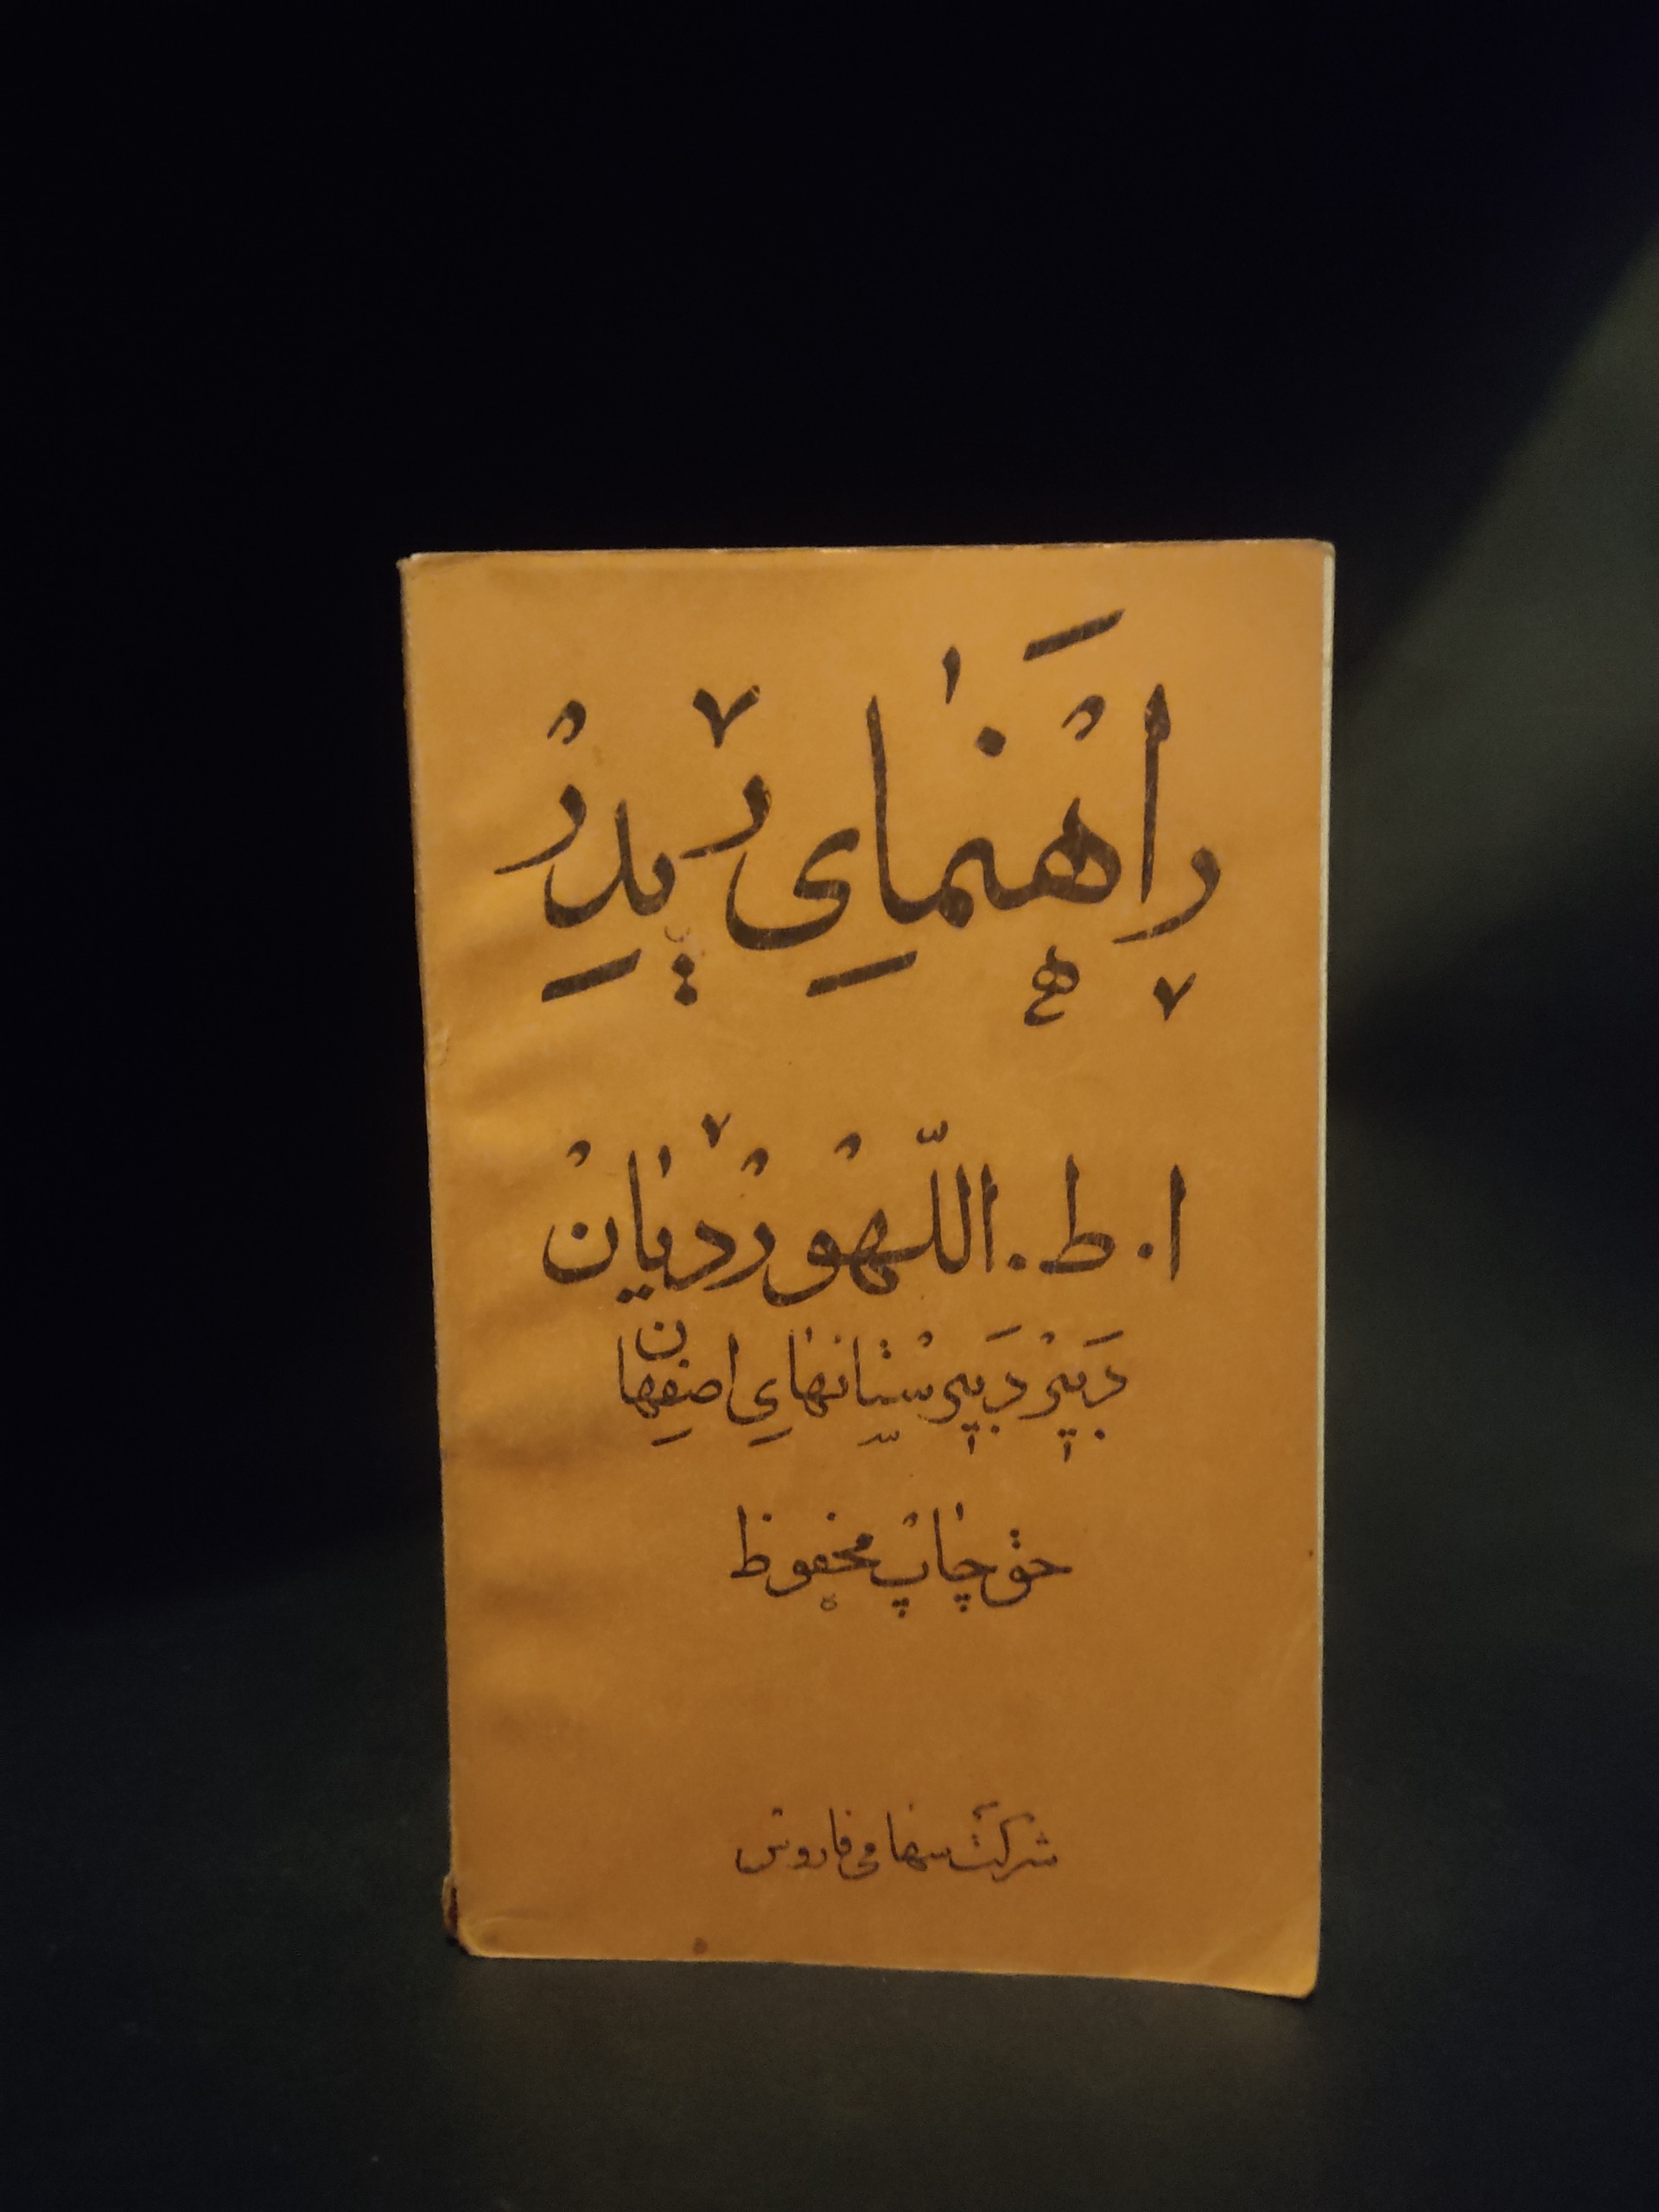 راهْنَمایِ ریدِرْ
ا. ط. اللّهْوِرْدیانْ
دَبیرْ دَبیرسْتانهایِ اصفِهان
حق چاپ محفوظ
شرکَت سهامی فاروس